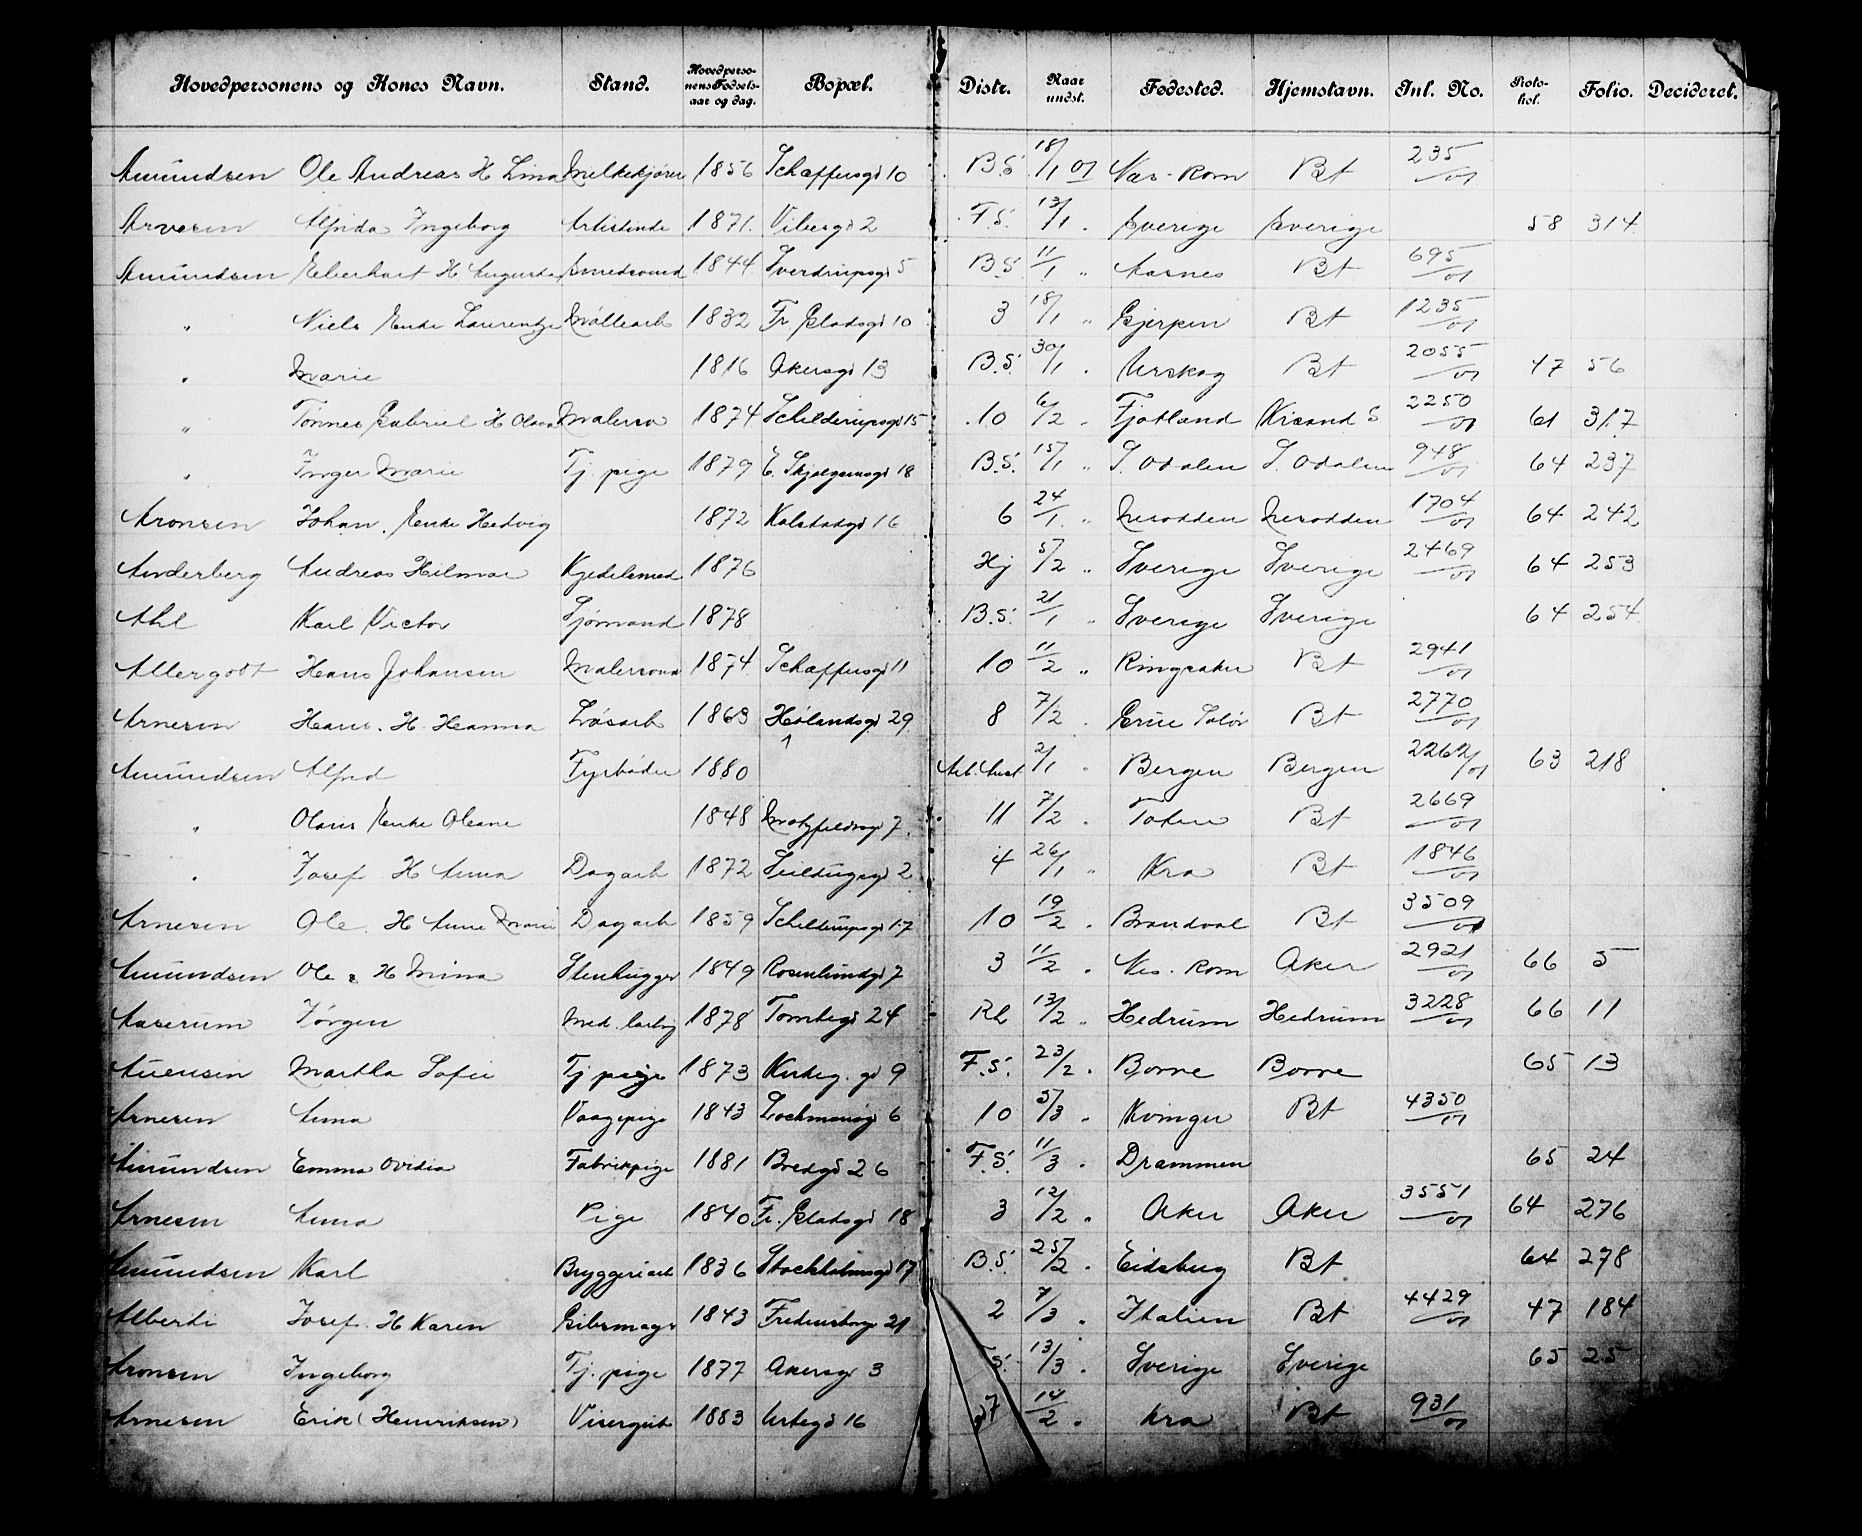 Hovedpersonens og Kones Navn. Stand. Hovedpersonens Fødselsaar og dag. Bopæl. Distr. Naar undst. Fødested. Hjemstavn. Inl. No. Protokol. Folio. Decideret.
Amundsen Ole Andreas H Lina Melkekjører 1856 Schaffersgd 10 B.S. 18/1 01 Næs-Rom Bt 235/01
Arvesen Alfrida Ingeborg Artistinde 1871. Vibesgd 2 F.S. 13/1 Sverige Sverige 58 314
Amundsen Eberhart H. Augusta Smedsvend 1844 Sverdrupsgd 5 B.S. 11/1 " Aasnes Bt 695/01
" Niels Enke Laurentze Møllearb 1832 Fr Gladsgd 10 3 18/1 " Gjerpen Bt 1235/01
" Marie 1816 Akersgd 13 B.S. 30/1 Urskog Bt 2055/01 47 56
" Tønnes Gabriel H Olava Malersv 1874 Schilderupsgd 15 10 6/2 Fjotland Krsand S 2250/01 61 317
" Inger Marie Tj. pige 1879 E. Skjelgesensgd 18 B.S. 15/1 " S. Odalen S. Odalen 948/01 64 237
Aronsen Johan. Enke Hedvig 1872 Kalstadgd 16 6 24/1 " Nesodden Nesodden 1704/01 64 242
Anderberg Andreas Hilmar Kjedelsmed 1876 Hj 5/2 " Sverige Sverige 2469/01 64 253
Ahl Karl Victor Sjømand 1878 B.S. 21/1 " Sverige Sverige 64 254
Allergodt Hans Johansen Malersvend 1874 Schaffersgd 11 10 11/2 " Ringsaker Bt 2941/01
Arnesen Hans. H. Hanna Løsarb 1863 Hølandsgd 29 8 7/2 Grue Solør Bt 2770/01
Amundsen Alfred Fyrbøder 1880 Arb. Anst 2/1 Bergen Bergen 2262/01 63 218
" Olaus Enke Oleane 1848 Motzfeldtsgd 7 11 7/2 Toten Bt 2669/01
" Josef H Anna Dagarb 1872 Seildugsgd 2 4 26/1 " Kra Bt 1846/01
Arnesen Ole. H Anne Marie Dagarb 1859 Schilderupsgd 17 10 19/2 Brandval Bt 3509/01
Amundsen Ole H Mina Stenhugger 1849 Rosenlundgd 7 3 11/2 Nes. Rom Aker 2921/01 66 5
Aaserum Jørgen Med. 1878 Tomtegd 24 Rh 13/2 " Hedrum Hedrum 3228/01 66 11
Auensen Martha Sofie Tj pige 1873 Kirkeg. gd 9 F.S. 23/2 Borre Borre 65 13
Arnesen Anna Vaagepige 1843 Lochmansgd 6 10 5/3 Kvinger Bt 4350/01
Amundsen Emma Ovidia Fabrikpige 1881 Bredgd 26 F.S. 11/3 Drammen 65 24
Arnesen Anna Pige 1840 Fr. Gladsgd 18 3 12/2 Aker Aker 3551/01 64 276
Amundsen Karl Bryggeriarb 1836 Stockholmsgd 17 B.S. 25/2 Eidsberg Bt 64 278
Alberti Josef. H Karen Gibsmager 1843 Fredensborgv 21 2 7/3 Italien Bt 4429/01 47 184
Aronsen Ingeborg Tj. pige 1877 Akersgd 3 F.S. 13/3 Sverige Sverige 65 25
Arnesen Erik (Henriksen) Visergut 1883 Urtegd 16 7 14/2 Kra Bt 931/01